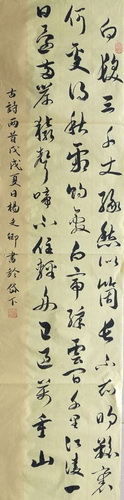 白髮三千丈緣愁似箇長不知明鏡裏
何處得秋霜朝辭白帝彩雲間千里江陵一
日還兩岸猿聲啼不住輕舟已過萬重山
古詩兩首戊戌夏日楊卿書於岱下